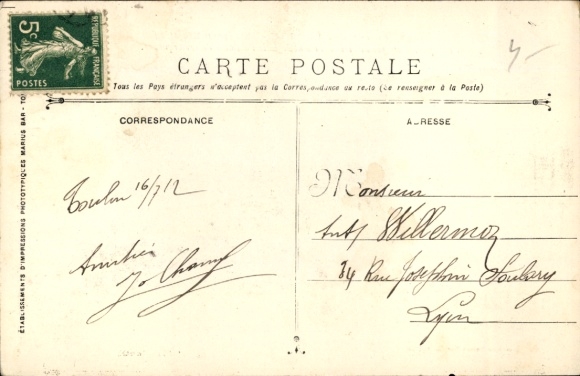 5c
RÉPUBLIQUE FRANÇAISE
POSTES
CARTE POSTALE
Tous les Pays étrangers n'acceptent pas la Correspondance au recto (Se renseigner à la Poste)
CORRESPONDANCE
ADRESSE
Toulon 16/7 12
Amitiés
Monsieur
Ant. Willermoz
34 Rue Joséphin Soulary
Lyon
ÉTABLISSEMENTS D'IMPRESSIONS PHOTOTYPIQUES MARIUS BAR